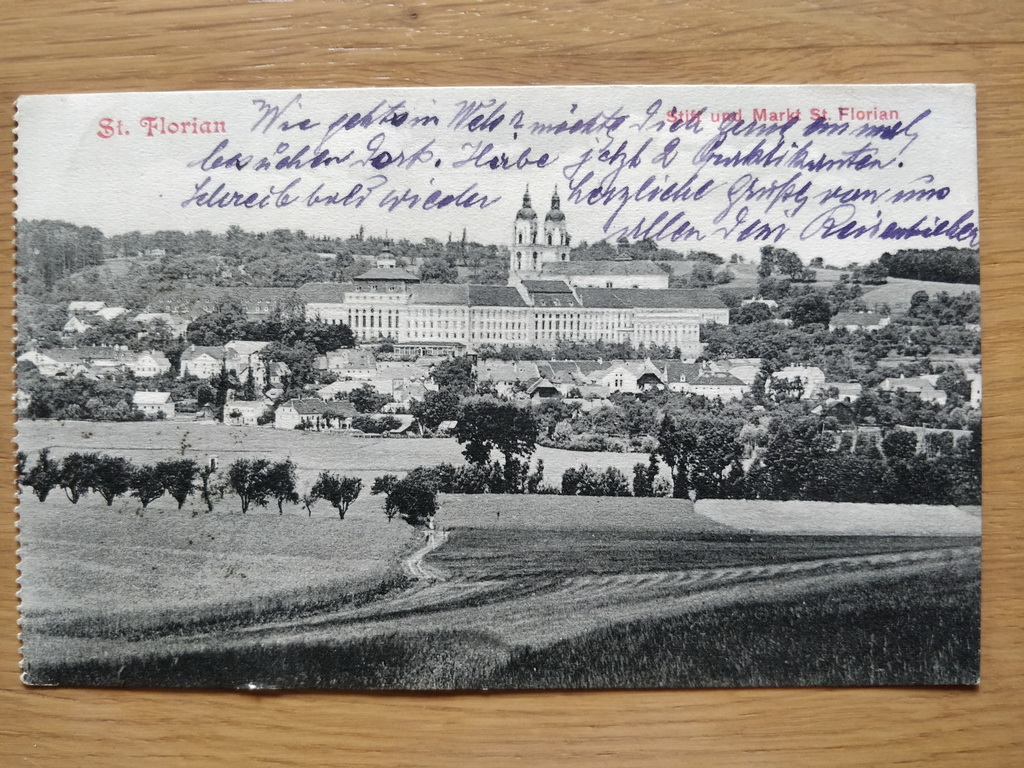 St. Florian
Stift und Markt St. Florian
Wie geht's in Wels? möchte Dich gerne einmal
besuchen dort. Habe jetzt 2 Praktikanten.
Schreib bald wieder herzliche Grüße von uns
allen Dein